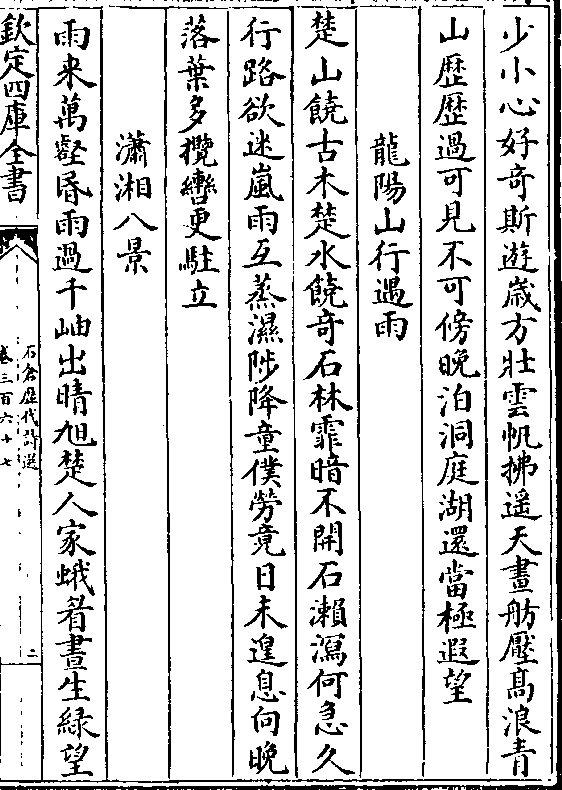 少小心好奇斯遊歲方壯雲帆拂遥天畫舫壓髙浪青
山歴歴過可見不可傍晚泊洞庭湖還當極遐望
龍陽山行遇雨
楚山饒古木楚水饒奇石林霏暗不開石瀨瀉何急久
行路欲迷嵐雨互蒸濕陟降童僕勞竟日未遑息向晚
落葉多攬轡更駐立
瀟湘八景
雨来萬壑昏雨過千岫出晴旭楚人家蛾眉晝生緑望
欽定四庫全書
石倉歴代詩選
卷三百六十七
二